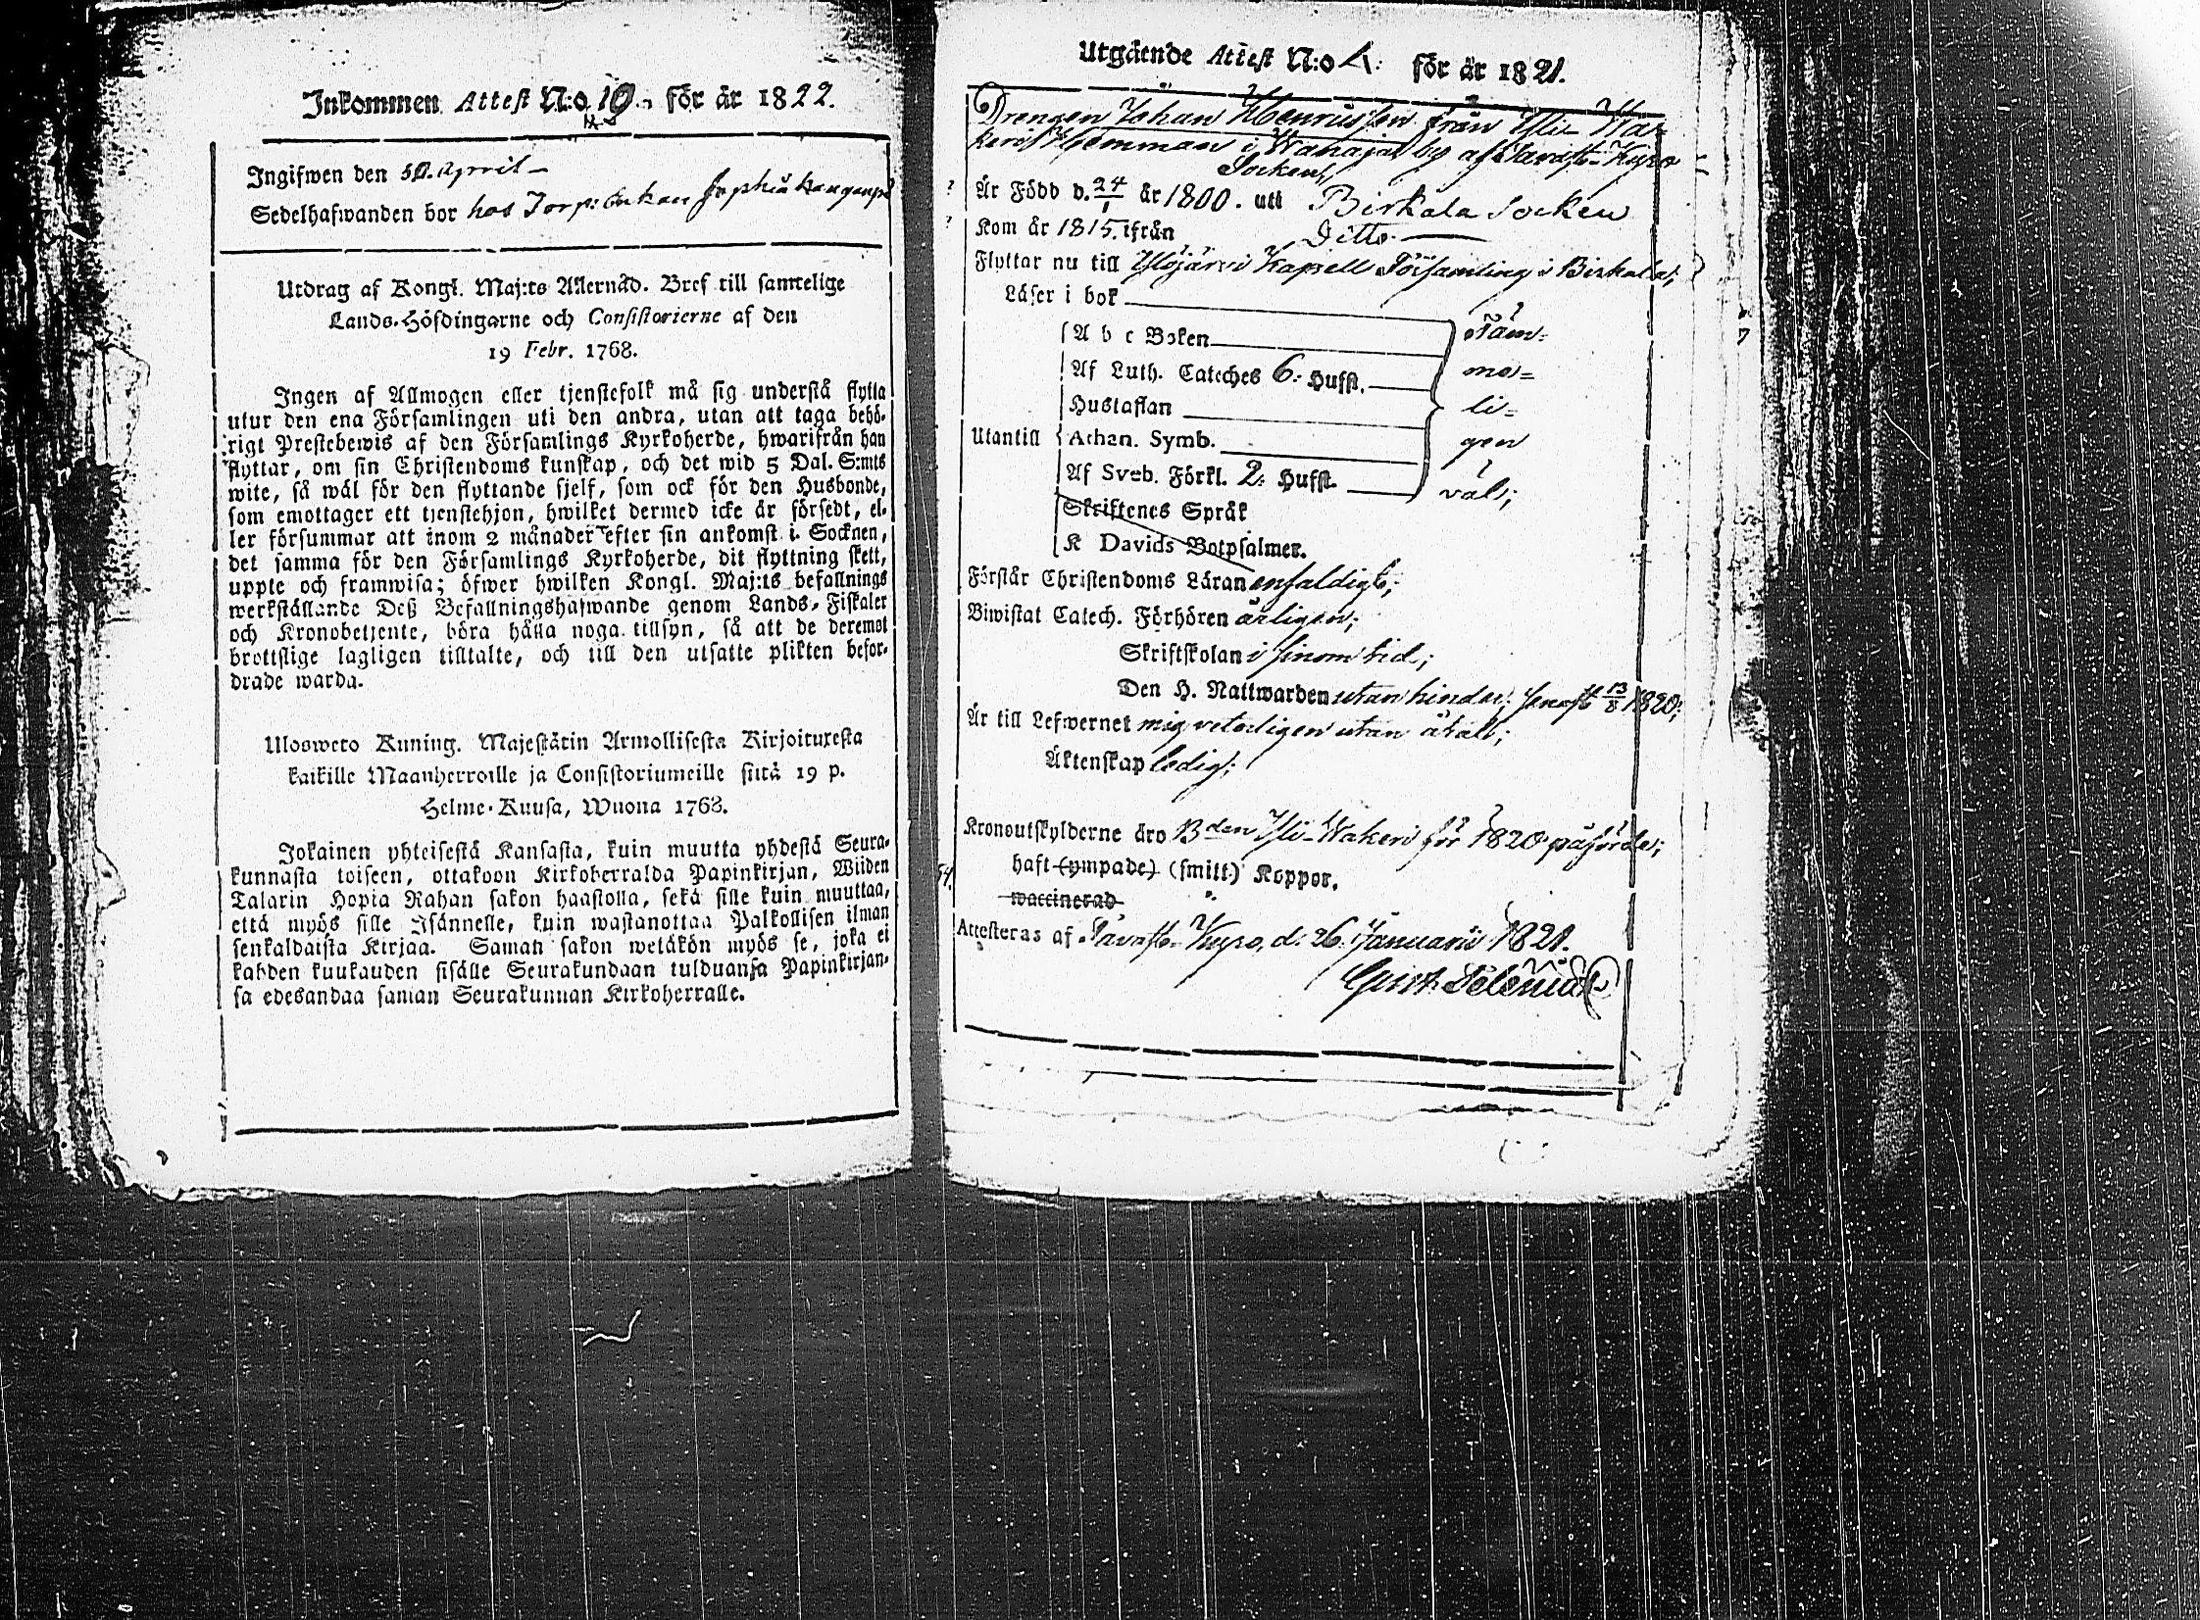 Inkommen Attest N:o 10. för år 1822.
Ingifwen den 30. April
Sedelhafwanden bor hos Torp: Enkan Sophia
Utdrag af Kongl. Maj:ts Allernåd. Bref till samtelige
Lands-Höfdingarne och Consistorierne af den
19 Febr. 1768.
Ingen af Allmogen eller tjenstefolk må sig understå flytta
utur den ena Församlingen uti den andra, utan att taga behö-
rigt Prestebewis af den Församlings Kyrkoherde, hwarifrån han
flyttar, om sin Christendoms kunskap, och det wid 5 Dal. S:mts
wite, så wäl för den flyttande sjelf, som ock för den Husbonde,
som emottager ett tjenstehjon, hwilket dermed icke är försedt, el-
ler försummar att inom 2 månader efter sin ankomst i Socknen,
det samma för den Församlings Kyrkoherde, dit flyttning skett,
uppte och framwisa; öfwer hwilken Kongl. Maj:ts befallnings
werkställande Deß Befallningshafwande genom Lands-Fiskaler
och Kronobetjente, böra hålla noga tillsyn, så att de deremot
brottslige lagligen tilltalte, och till den utsatte plikten befor-
drade warda.
Uloswero Kuning. Majestätin Armollisesta Kirjoituxesta
kaikille Maanherroille ja Consistoriumeille siitä 19 p.
Helme-Kuusa, Wuona 1768.
Jokainen yhteisestä Kansasta, kuin muutta yhdestä Seura-
kunnasta toiseen, ottakoon Kirkoherralda Papinkirjan, Wiiden
Talarin Hopia Rahan sakon haastolla, sekä sille kuin muuttaa,
että myös sille Isännelle, kuin wastanottaa Palkollisen ilman
senkaldaista Kirjaa. Saman sakon wetäkön myös se, joka ei
kahden kuukauden sisälle Seurakundaan tulduansa Papinkirjan-
sa edesandaa saman Seurakunnan Kirkoherralle.
Utgående Attest N:o 4. för år 1821.
Drengen Johan Henricsson från Yli-Wa-
keris Hemman i Wahajärvi by af Tavast-Kyro
Socken,
Är Född d. 24/1 år 1800. uti Birkala Socken
Kom år 1815. ifrån Ditto
Flyttar nu till Ylöjärvi Kapell Församling i Birkala;
Läser i bok
A b c Boken näm-
Af Luth. Catches 6: Hufst. ne-
Hustaflan li-
Utantill Athan. Symb. gen
Af Sveb. Förkl. 2: Hufst. väl;
Skriftenes Språk
K Davids Botpsalmer.
Förstår Christendoms Läran enfaldigt;
Biwistat Catech. Förhören årligen;
Skriftskolan i sinom tid;
Den H. Nattwarden utan hinder, senast d 13/8 1820;
Är till Lefwernet mig veterligen utan åtal;
Äktenskap ledig;
Kronoutskylderne äro B:den Yli-Wakeri för 1820 påförde;
haft (ympade) (smitt.) Koppor.
waccinerad
Attesteras af Tavast-Kyro, d. 26 Januarii 1821.